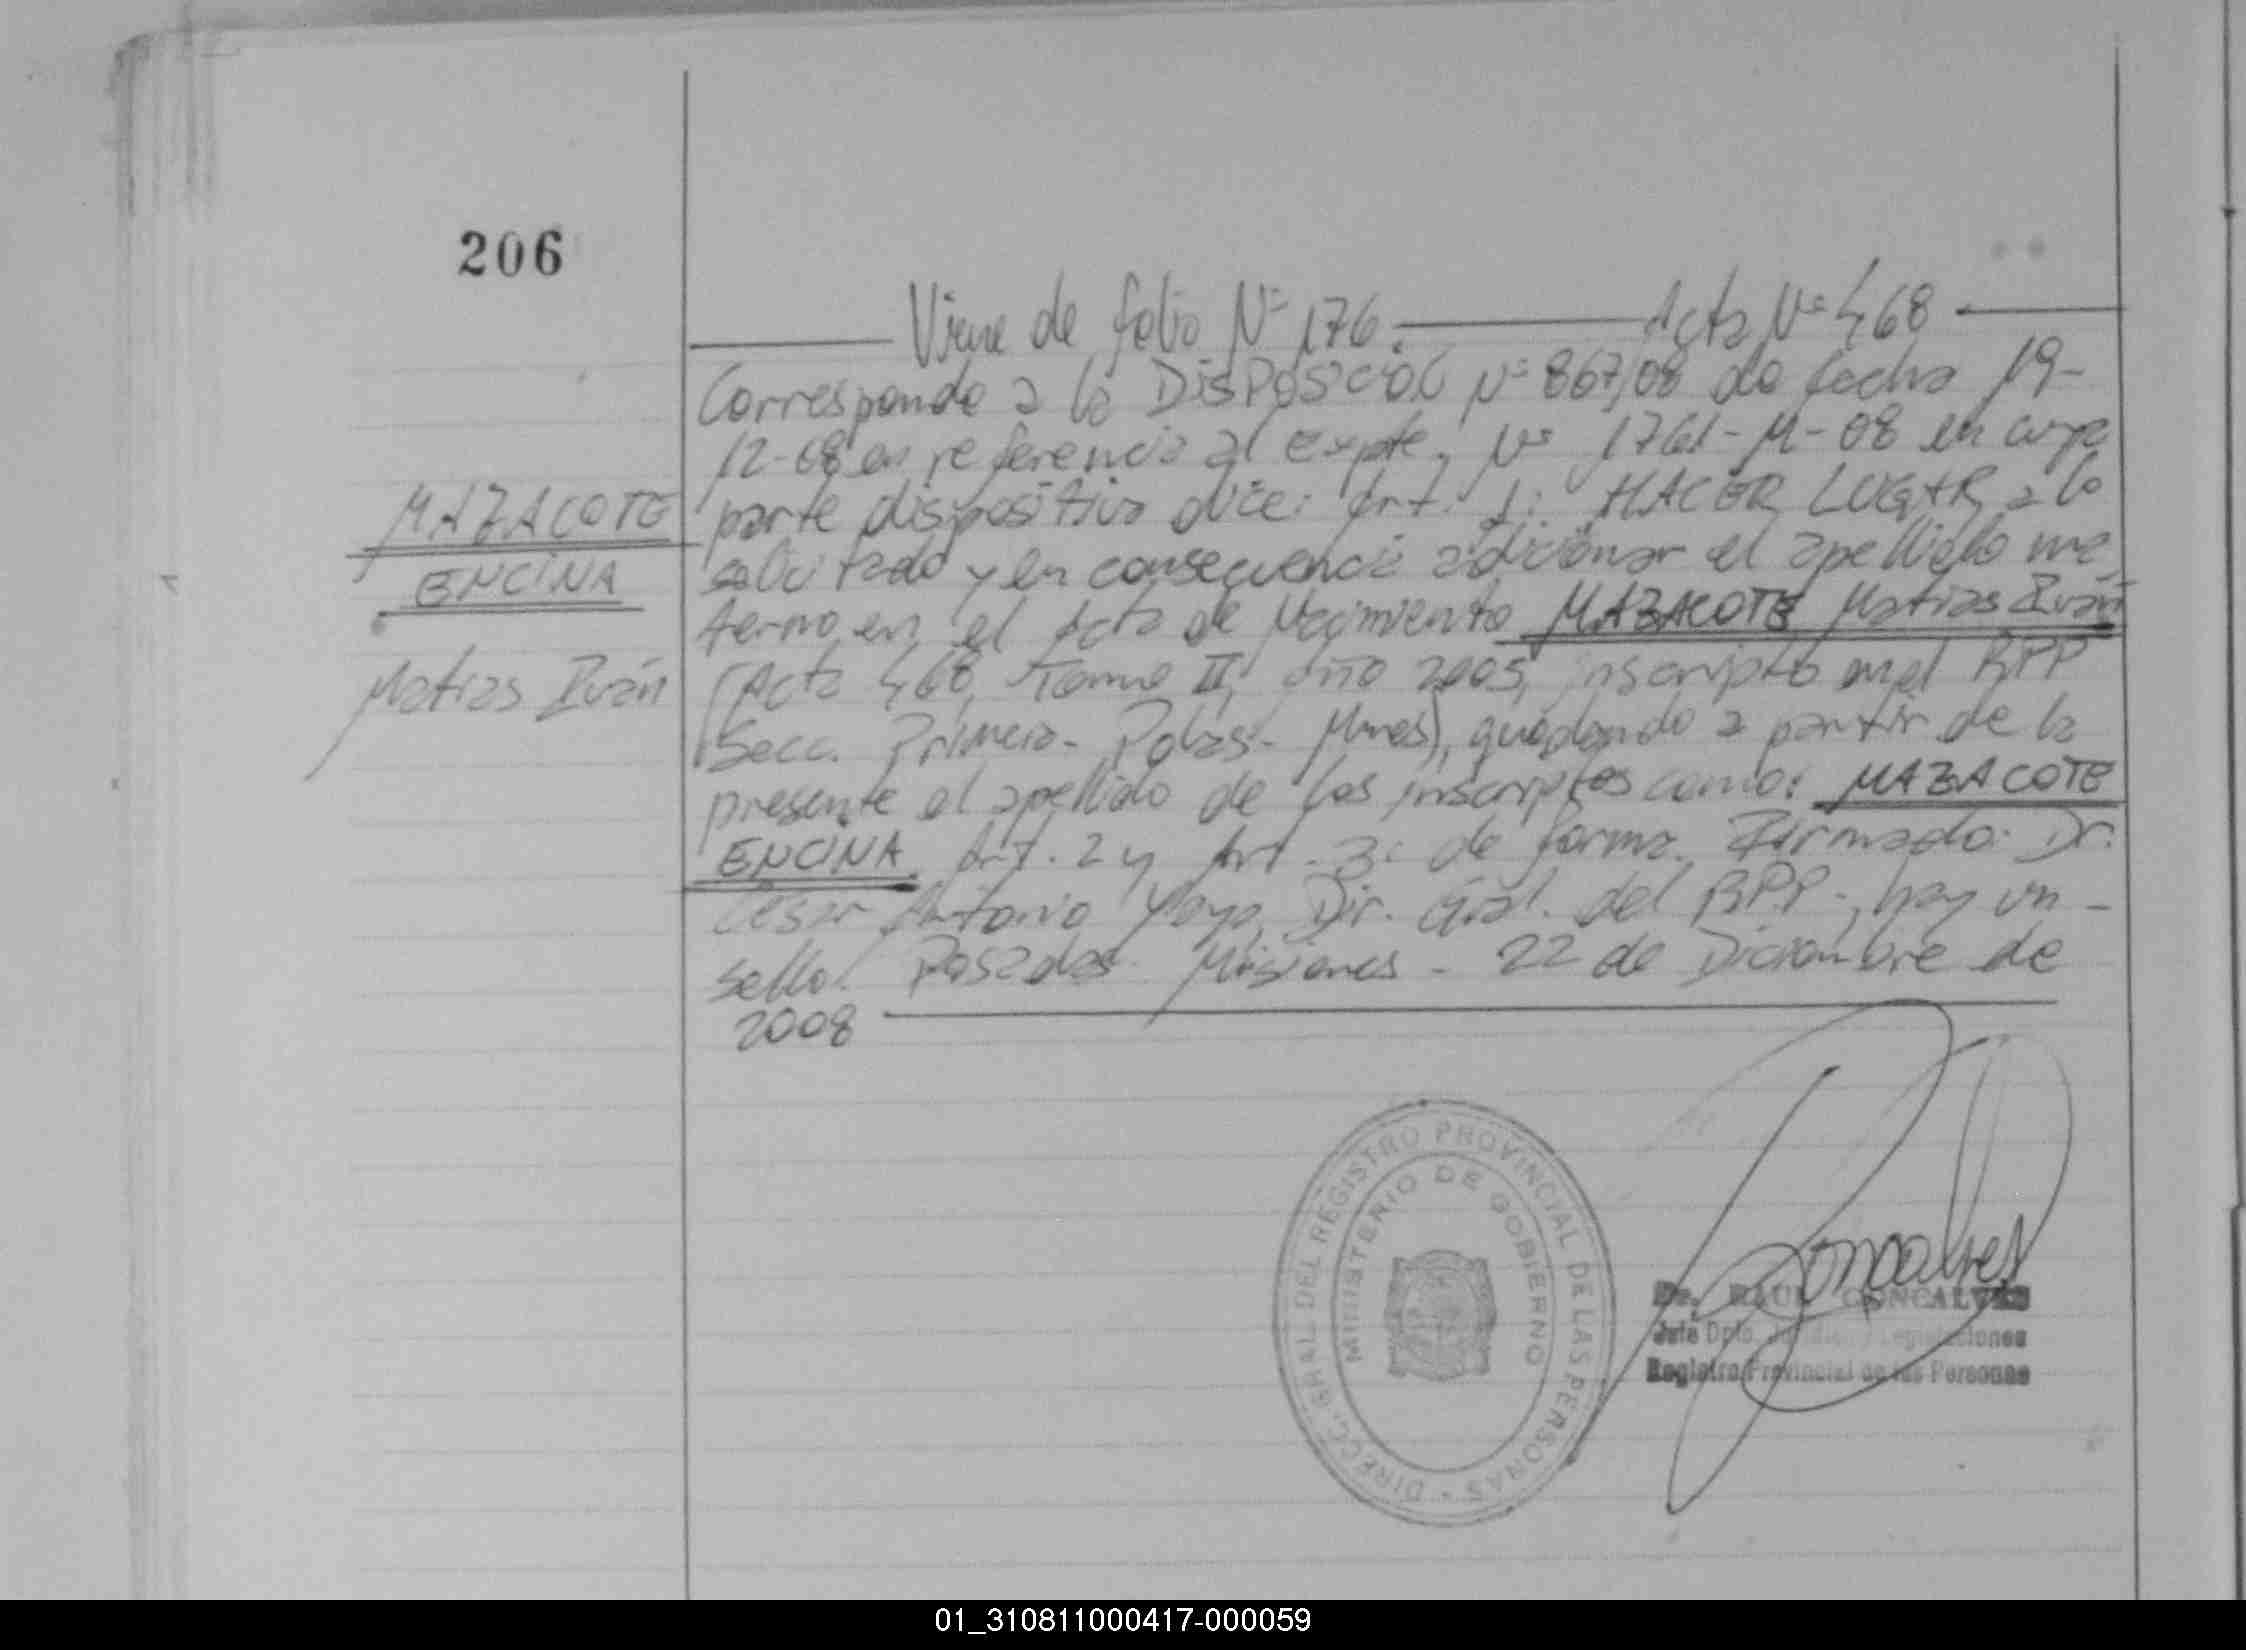 206
Viene de folio Nº 176. Acta Nº 468
Corresponde a la DISPOSICIÓN Nº 867/08 de fecha 19-
12-08 en referencia al expte. Nº 1761-M-08 en cuya
MAZACOTE
parte dispositiva dice: Art. 1: HACER LUGAR a lo
ENCINA
solicitado y en consecuencia adicionar el apellido ma
terno en el Acta de Nacimiento MAZACOTE Matias Iván
Matias Iván
(Acta 468, Tomo II, año 2005, inscripto en el RPP
Secc. Primera - Pdas - Mnes), quedando a partir de la
presente el apellido de los inscriptos como: MAZACOTE
ENCINA. Art. 2 y Art. 3: de forma. Firmado: Dr.
Cesar Antonio Dir. Gral. del RPP-, hay un -
sello. Posadas Misiones - 22 de Diciembre de
2008
DIRECC. GRAL. DEL REGISTRO PROVINCIAL DE LAS PERSONAS
MINISTERIO DE GOBIERNO
Goncalves
Dr. RAUL GONCALVES
Jefe Dpto.
Registro Provincial de las Personas
01_310811000417-000059